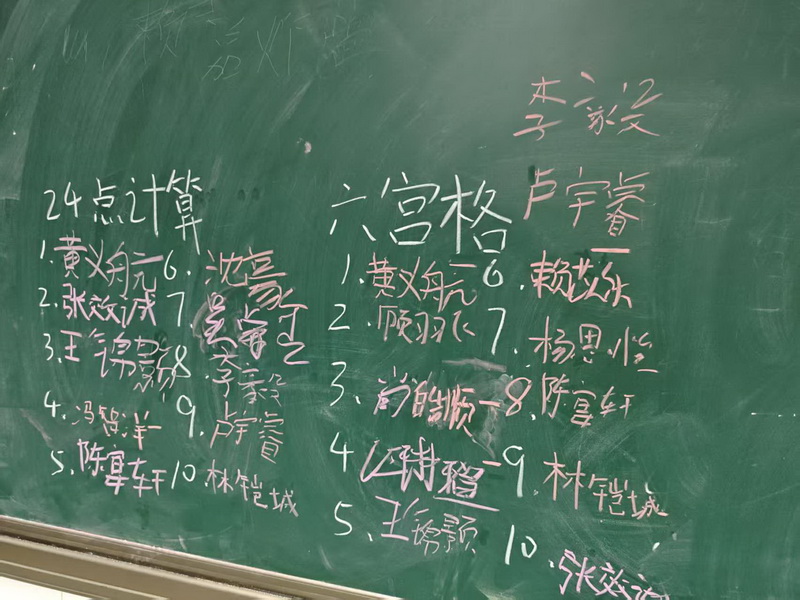 李毅
卢宇睿
24点计算
1.黄义舟元
2.张效诚
3.王锦颢
4.冯智洋
5.陈宣轩
6.沈豪
7.
8.李毅
9.卢宇睿
10.林铠城
六宫格
1.黄义舟元
2.顾羽
3.尚皓顺
4.
5.王锦颢
6.赖苡乐
7.杨思怡
8.陈宣轩
9.林铠城
10.张效诚